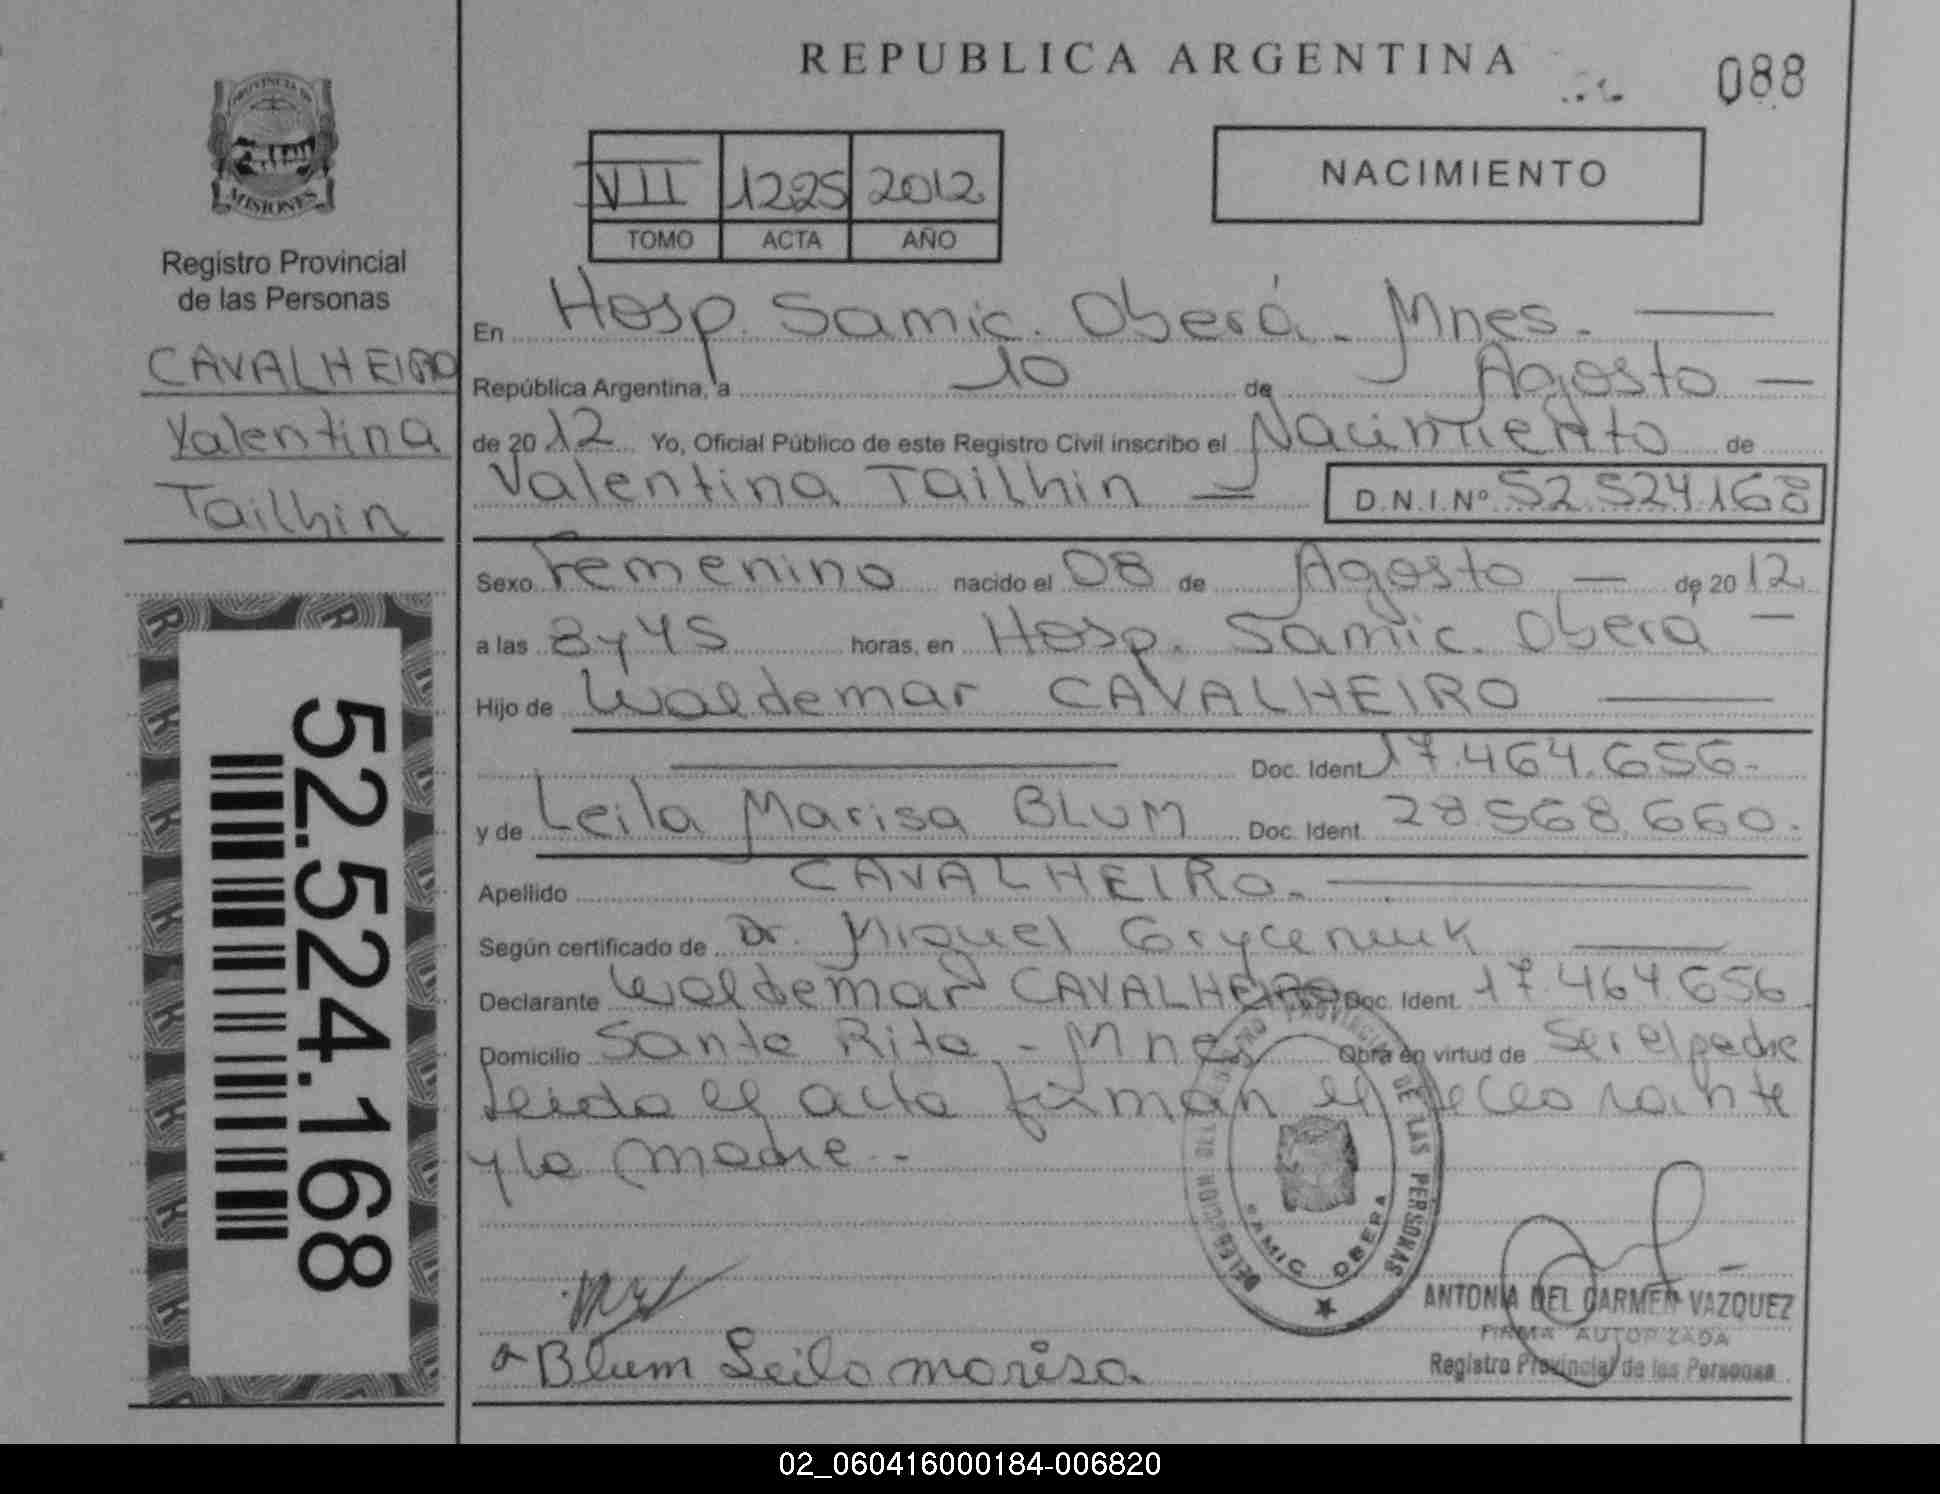 REPUBLICA ARGENTINA
088
PROVINCIA DE
MISIONES
Registro Provincial
de las Personas
CAVALHEIRO
Valentina
Tailhin
52.524.168
VII 1225 2012
TOMO ACTA AÑO
NACIMIENTO
En Hosp. Samic. Oberá - Mnes.
República Argentina, a 10 de Agosto
de 2012 Yo, Oficial Público de este Registro Civil inscribo el Nacimiento de
Valentina Tailhin D.N.I.Nº 52.524.168
Sexo Femenino nacido el 08 de Agosto de 2012
a las 8 y 45 horas, en Hosp. Samic. Oberá
Hijo de Waldemar CAVALHEIRO
Doc. Ident 17.464.656.
y de Leila Marisa BLUM Doc. Ident. 28.568.660.
Apellido CAVALHEIRO.
Según certificado de Dr. Miguel
Declarante Waldemar CAVALHEIRO Doc. Ident. 17.464.656
Domicilio Santa Rita - Mnes Obra en virtud de Ser el padre
Leida el acta firman el declarante
y la madre.-
DELEGACION DEL REGISTRO PROVINCIAL DE LAS PERSONAS
SAMIC OBERA
Blum Leila marisa.
ANTONIA DEL CARMEN VAZQUEZ
FIRMA AUTORIZADA
Registro Provincial de las Personas
02_060416000184-006820